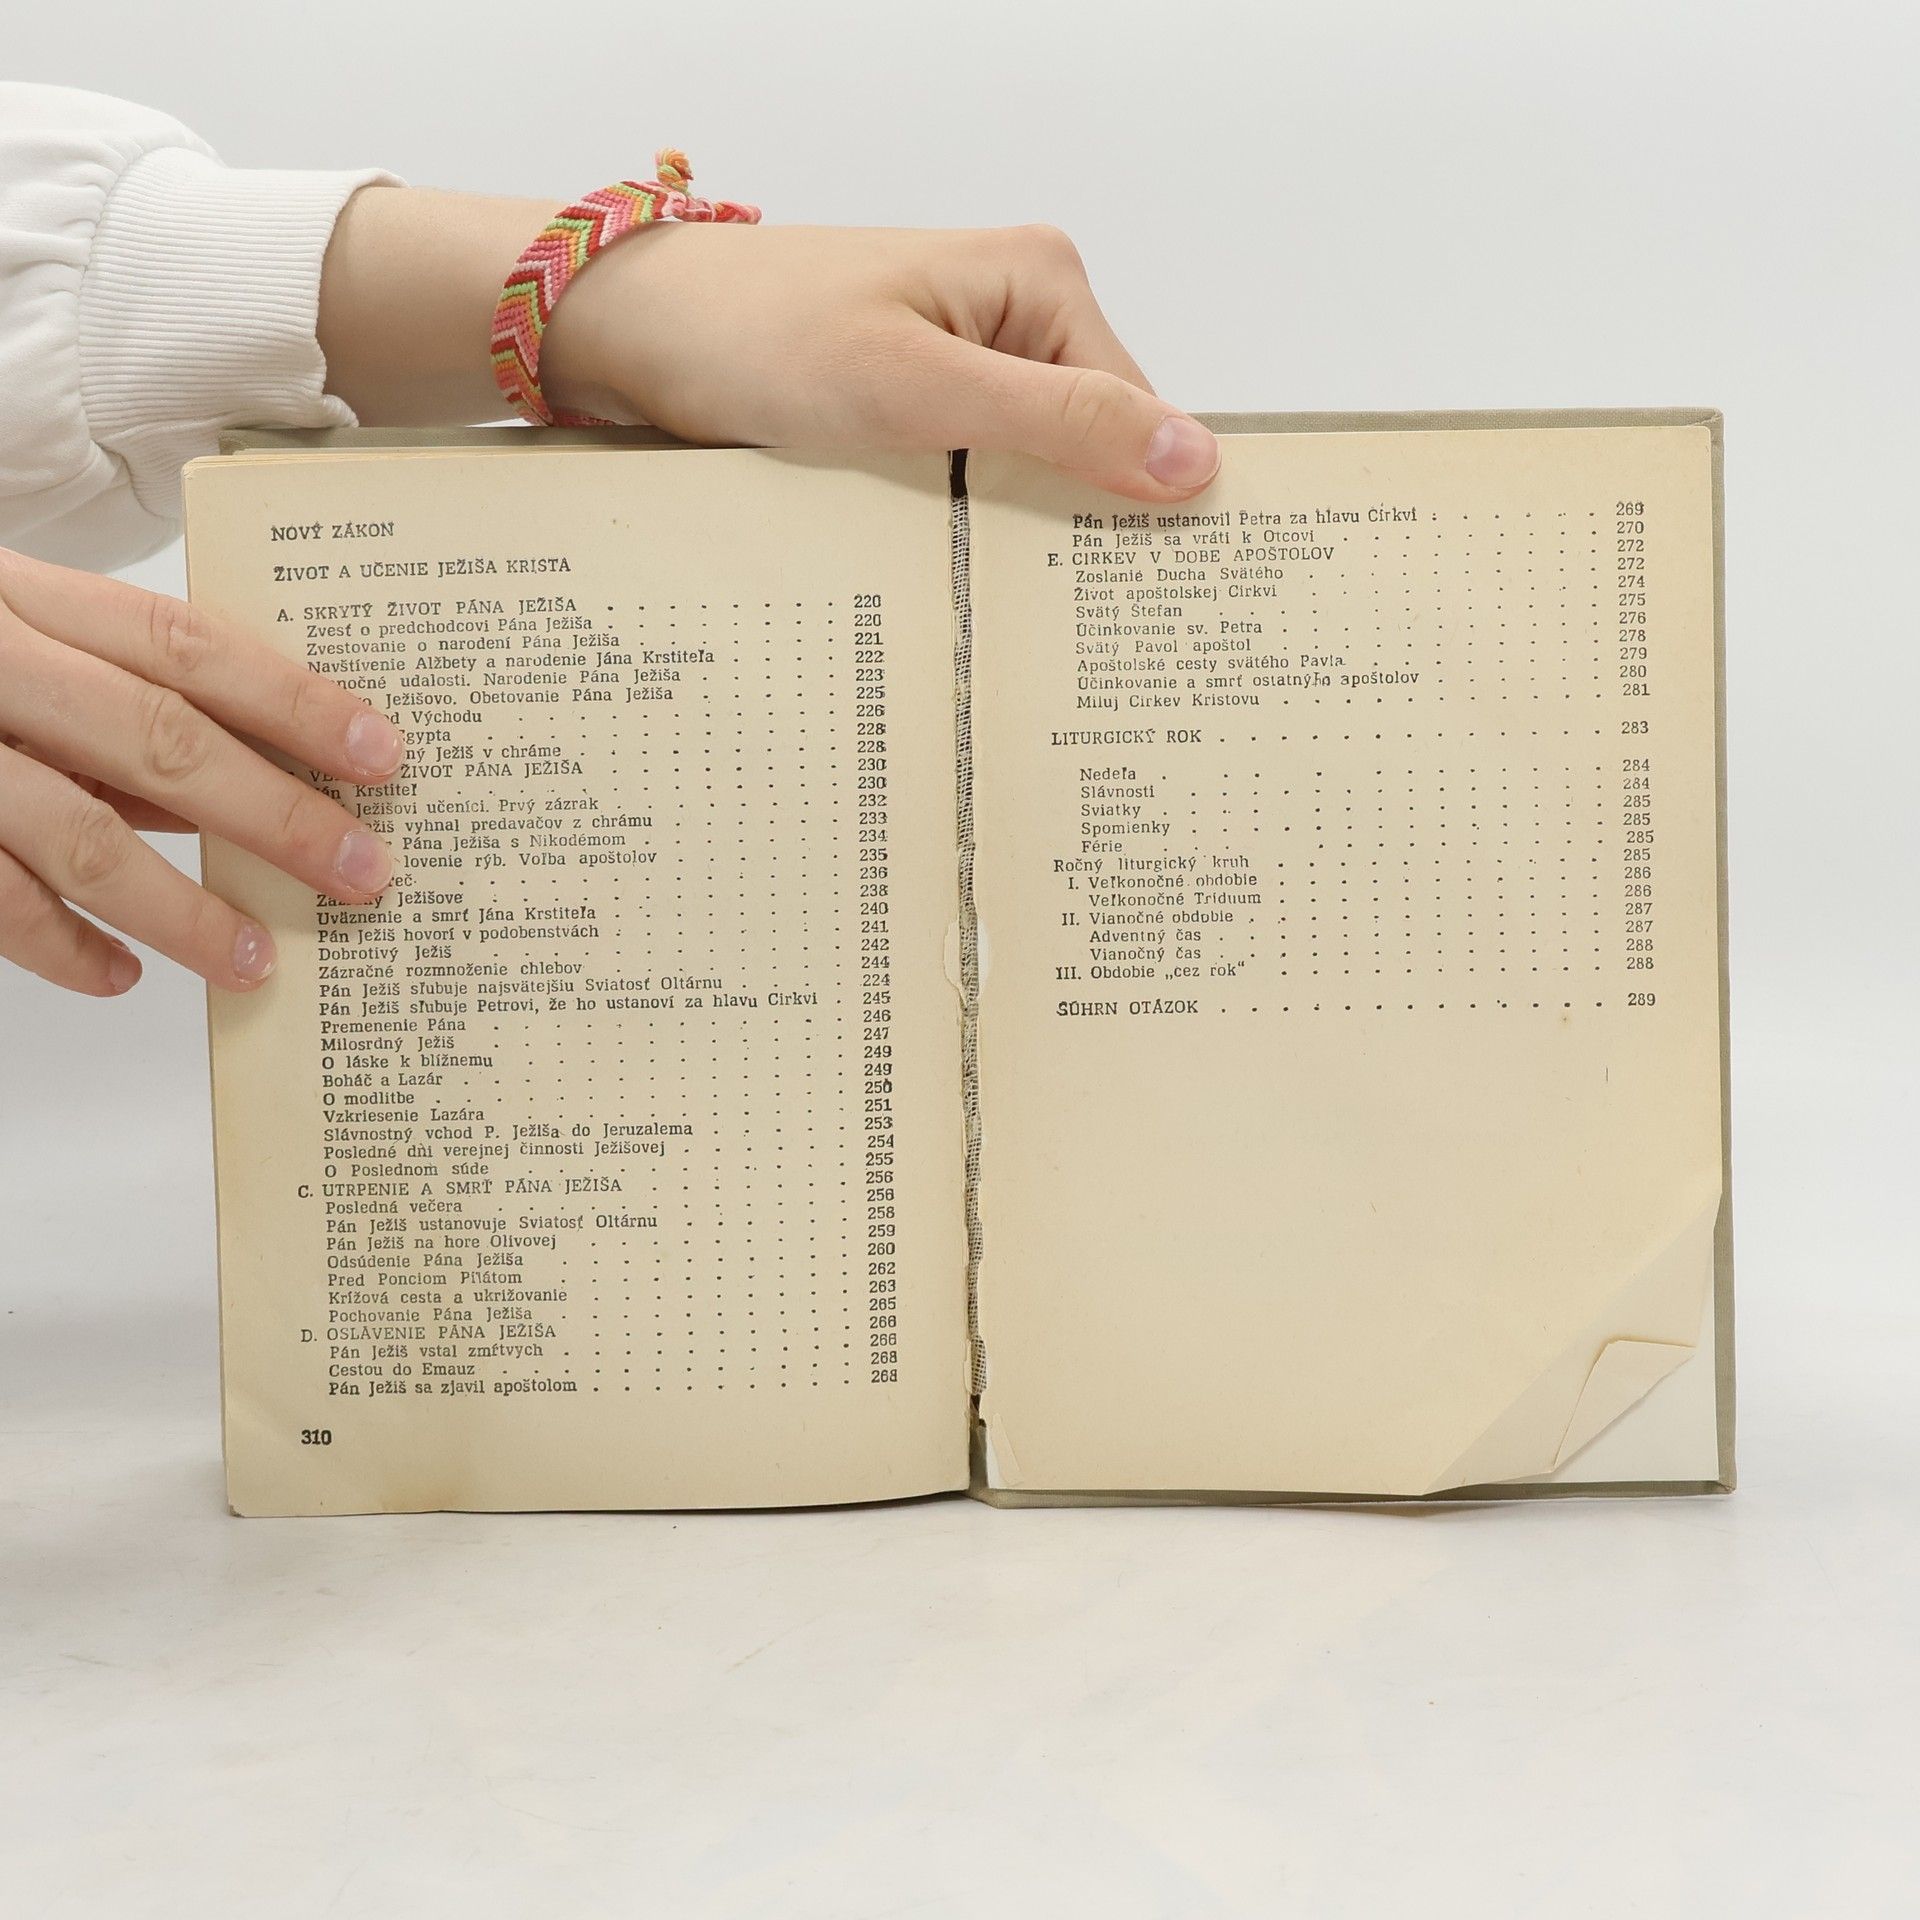 NOVÝ ZÁKON
ŽIVOT A UČENIE JEŽIŠA KRISTA
A. SKRYTÝ ŽIVOT PÁNA JEŽIŠA . . . . . . . . 220
Zvesť o predchodcovi Pána Ježiša . . . . . . . . 220
Zvestovanie o narodení Pána Ježiša . . . . . . . 221
Navštívenie Alžbety a narodenie Jána Krstiteľa . . . . 222
udalosti. Narodenie Pána Ježiša . . . . . 223
Ježišovo. Obetovanie Pána Ježiša . . . . . 225
od Východu . . . . . . . . . . . 226
Egypta . . . . . . . . . . . . 228
Ježiš v chráme . . . . . . . . . 228
ŽIVOT PÁNA JEŽIŠA . . . . . . . . 230
Krstiteľ . . . . . . . . . . . . 230
Ježišovi učeníci. Prvý zázrak . . . . . . . . 232
vyhnal predavačov z chrámu . . . . . . 233
Pána Ježiša s Nikodémom . . . . . . . 234
lovenie rýb. Voľba apoštolov . . . . . . 235
. . . . . . . . . . . . . 236
Ježišove . . . . . . . . . . . 238
Uväznenie a smrť Jána Krstiteľa . . . . . . . . 240
Pán Ježiš hovorí v podobenstvách . . . . . . . . 241
Dobrotivý Ježiš . . . . . . . . . . . 242
Zázračné rozmnoženie chlebov . . . . . . . . 244
Pán Ježiš sľubuje najsvätejšiu Sviatosť Oltárnu . . . . 224
Pán Ježiš sľubuje Petrovi, že ho ustanoví za hlavu Cirkvi . 245
Premenenie Pána . . . . . . . . . . . . 246
Milosrdný Ježiš . . . . . . . . . . . . 247
O láske k blížnemu . . . . . . . . . . . 249
Boháč a Lazár . . . . . . . . . . . . . 249
O modlitbe . . . . . . . . . . . . . . 250
Vzkriesenie Lazára . . . . . . . . . . . 251
Slávnostný vchod P. Ježiša do Jeruzalema . . . . . 253
Posledné dni verejnej činnosti Ježišovej . . . . . . 254
O Poslednom súde . . . . . . . . . . . 255
C. UTRPENIE A SMRŤ PÁNA JEŽIŠA . . . . . . . 256
Posledná večera . . . . . . . . . . . . 256
Pán Ježiš ustanovuje Sviatosť Oltárnu . . . . . . 258
Pán Ježiš na hore Olivovej . . . . . . . . . 259
Odsúdenie Pána Ježiša . . . . . . . . . . 260
Pred Ponciom Pilátom . . . . . . . . . . 262
Krížová cesta a ukrižovanie . . . . . . . . . 263
Pochovanie Pána Ježiša . . . . . . . . . . 265
D. OSLÁVENIE PÁNA JEŽIŠA . . . . . . . . . 266
Pán Ježiš vstal zmŕtvych . . . . . . . . . . 266
Cestou do Emauz . . . . . . . . . . . . 268
Pán Ježiš sa zjavil apoštolom . . . . . . . . . 268
310
Pán Ježiš ustanovil Petra za hlavu Cirkvi . . . . . . 269
Pán Ježiš sa vráti k Otcovi . . . . . . . . . 270
E. CIRKEV V DOBE APOŠTOLOV . . . . . . . . 272
Zoslanie Ducha Svätého . . . . . . . . . . 272
Život apoštolskej Cirkvi . . . . . . . . . . 274
Svätý Štefan . . . . . . . . . . . . . 275
Účinkovanie sv. Petra . . . . . . . . . . . 276
Svätý Pavol apoštol . . . . . . . . . . . 278
Apoštolské cesty svätého Pavla . . . . . . . . 279
Účinkovanie a smrť ostatných apoštolov . . . . . . 280
Miluj Cirkev Kristovu . . . . . . . . . . . 281
LITURGICKÝ ROK . . . . . . . . . . . . . 283
Nedeľa . . . . . . . . . . . . . . 284
Slávnosti . . . . . . . . . . . . . . 284
Sviatky . . . . . . . . . . . . . . 285
Spomienky . . . . . . . . . . . . . 285
Férie . . . . . . . . . . . . . . . 285
Ročný liturgický kruh . . . . . . . . . . . 285
I. Veľkonočné obdobie . . . . . . . . . . . 286
Veľkonočné Triduum . . . . . . . . . . . 286
II. Vianočné obdobie . . . . . . . . . . . . 287
Adventný čas . . . . . . . . . . . . . 287
Vianočný čas . . . . . . . . . . . . . 288
III. Obdobie „cez rok“ . . . . . . . . . . . 288
SÚHRN OTÁZOK . . . . . . . . . . . . . 289